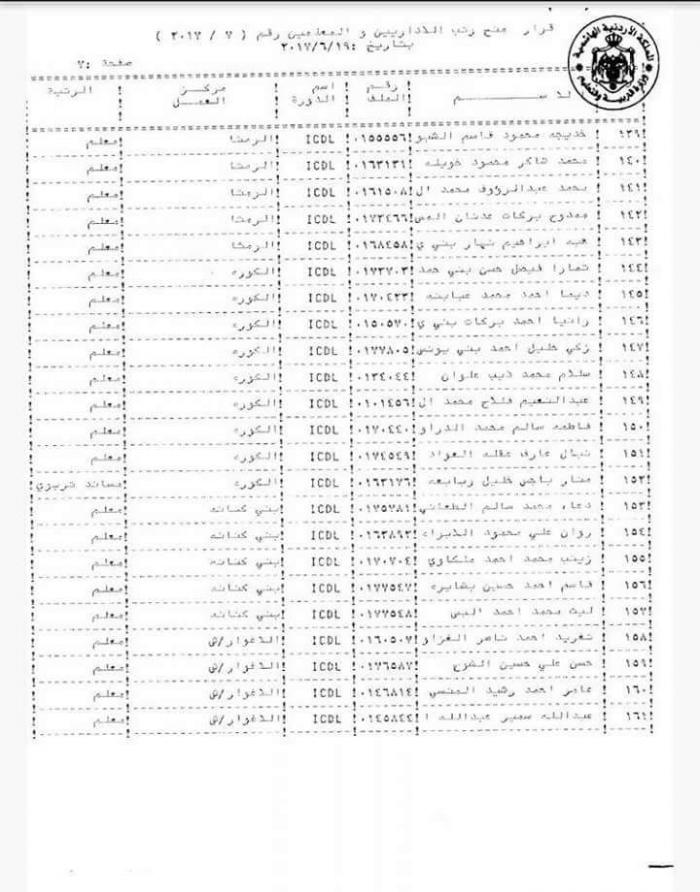 قرار منح رتب للاداريين و المعلمين رقم ( ٧ / ٢٠١٧ )
بتاريخ :٢٠١٧/٦/١٩
صفحة :٧
الاســـــم ! رقم الملف ! اسم الدورة ! مركز العمل ! الرتبة
١٣٩! خديجه محمود قاسم الشبو !٠١٥٥٥٥٦! ICDL !الرمثا !معلم
١٤٠! محمد شاكر محمود خويله !٠١٦٣١٣١! ICDL !الرمثا !معلم
١٤١! محمد عبدالرؤوف محمد ال !٠١٦١٥٠٨! ICDL !الرمثا !معلم
١٤٢! ممدوح بركات عدنان !٠١٧٣٤٦٦! ICDL !الرمثا !معلم
١٤٣! هبه ابراهيم نهار بني ي !٠١٦٨٤٥٨! ICDL !الرمثا !معلم
١٤٤! تمارا فيصل حسن بني حمد !٠١٧٣٧٠٣! ICDL !الكوره !معلم
١٤٥! ديما احمد محمد عبابنه !٠١٧٠٤٣٣! ICDL !الكوره !معلم
١٤٦! رانيا احمد بركات بني ي !٠١٥٠٥٧٠! ICDL !الكوره !معلم
١٤٧! زكي خليل احمد بني يونس !٠١٧٧٨٠٥! ICDL !الكوره !معلم
١٤٨! سلام محمد ذيب علوان !٠١٣٤٠٤٤! ICDL !الكوره !معلم
١٤٩! عبدالنعيم فلاح محمد ال !٠١٠١٤٥٦! ICDL !الكوره !معلم
١٥٠! فاطمه سالم محمد الدراو !٠١٧٠٤٤٠! ICDL !الكوره !معلم
١٥١! نبال عارف عقله العواد !٠١٧٤٥٤٩! ICDL !الكوره !معلم
١٥٢! منار ناجي خليل ربابعه !٠١٦٣١٧٦! ICDL !الكوره !مساند تربوي
١٥٣! دعاء محمد سالم الطعاني !٠١٧٥٧٨١! ICDL !بني كنانه !معلم
١٥٤! روان علي محمود !٠١٦٣٨٩٣! ICDL !بني كنانه !معلم
١٥٥! زينب محمد احمد ملكاوي !٠١٧٠٧٠٤! ICDL !بني كنانه !معلم
١٥٦! قاسم احمد حسين بشايره !٠١٧٧٥٤٧! ICDL !بني كنانه !معلم
١٥٧! ليث محمد احمد !٠١٧٧٥٤٨! ICDL !بني كنانه !معلم
١٥٨! تغريد احمد ناصر الغزاو !٠١٦٠٥٠٧! ICDL !الاغوار/ش !معلم
١٥٩! حسن علي حسين الشرح !٠١٧٦٥٨٧! ICDL !الاغوار/ش !معلم
١٦٠! عامر احمد رشيد !٠١٤٦٨١٤! ICDL !الاغوار/ش !معلم
١٦١! عبدالله سمير عبدالله ا !٠١٤٥٨٤٤! ICDL !الاغوار/ش !معلم
المملكة الأردنية الهاشمية
وزارة التربية والتعليم